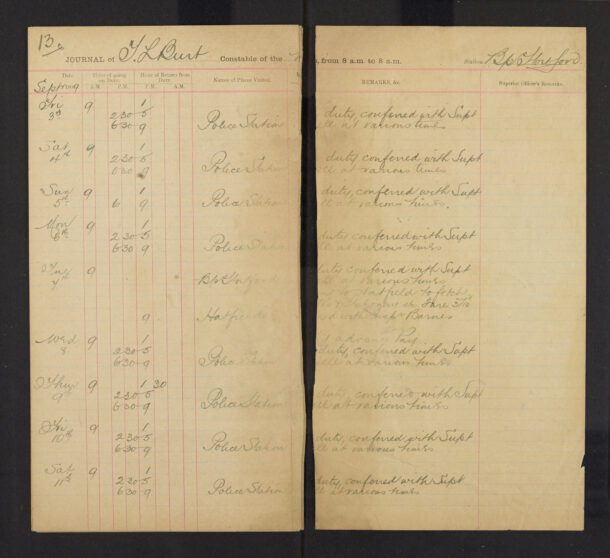 13.
JOURNAL of T L Burt Constable of the , from 8 a.m. to 8 a.m. Station Bp Stortford
Date Time of going on Duty. Hour of Return from Duty. Names of Places Visited. REMARKS, &c. Superior Officer's Remarks.
A.M. P.M. P.M. A.M.
Sept 1909
Fri 9 1
3rd 2 30 5 duty, conferred with Supt
6 30 9 Police Station ll at various times
Sat 9 1
4th 2 30 5 duty conferred with Supt
6 30 9 Police Station ll at various times
Sun 9 1 duty, conferred with Supt
5th 6 9 Police Station ll at various times.
Mon 9 1
6th 2 30 5 duty conferred with Supt
6 30 9 Police Station ll at various times
Tue 9 duty conferred with Supt
7 Bp Stortford ll at various times
to Hatfield to fetch
9 Hatfield with Barnes
Wed 9 1
8 2 30 5 duty, conferred with Supt
6 30 9 Police Station ll at various times
Thur 9 1 30
9 2 30 5 duty conferred with Supt
6 30 9 Police Station ll at various times
Fri 9 1
10th 2 30 5 duty, conferred with Supt
6 30 9 Police Station ll at various times
Sat 9 1
11th 2 30 5 duty, conferred with Supt
6 30 9 Police Station ll at various times